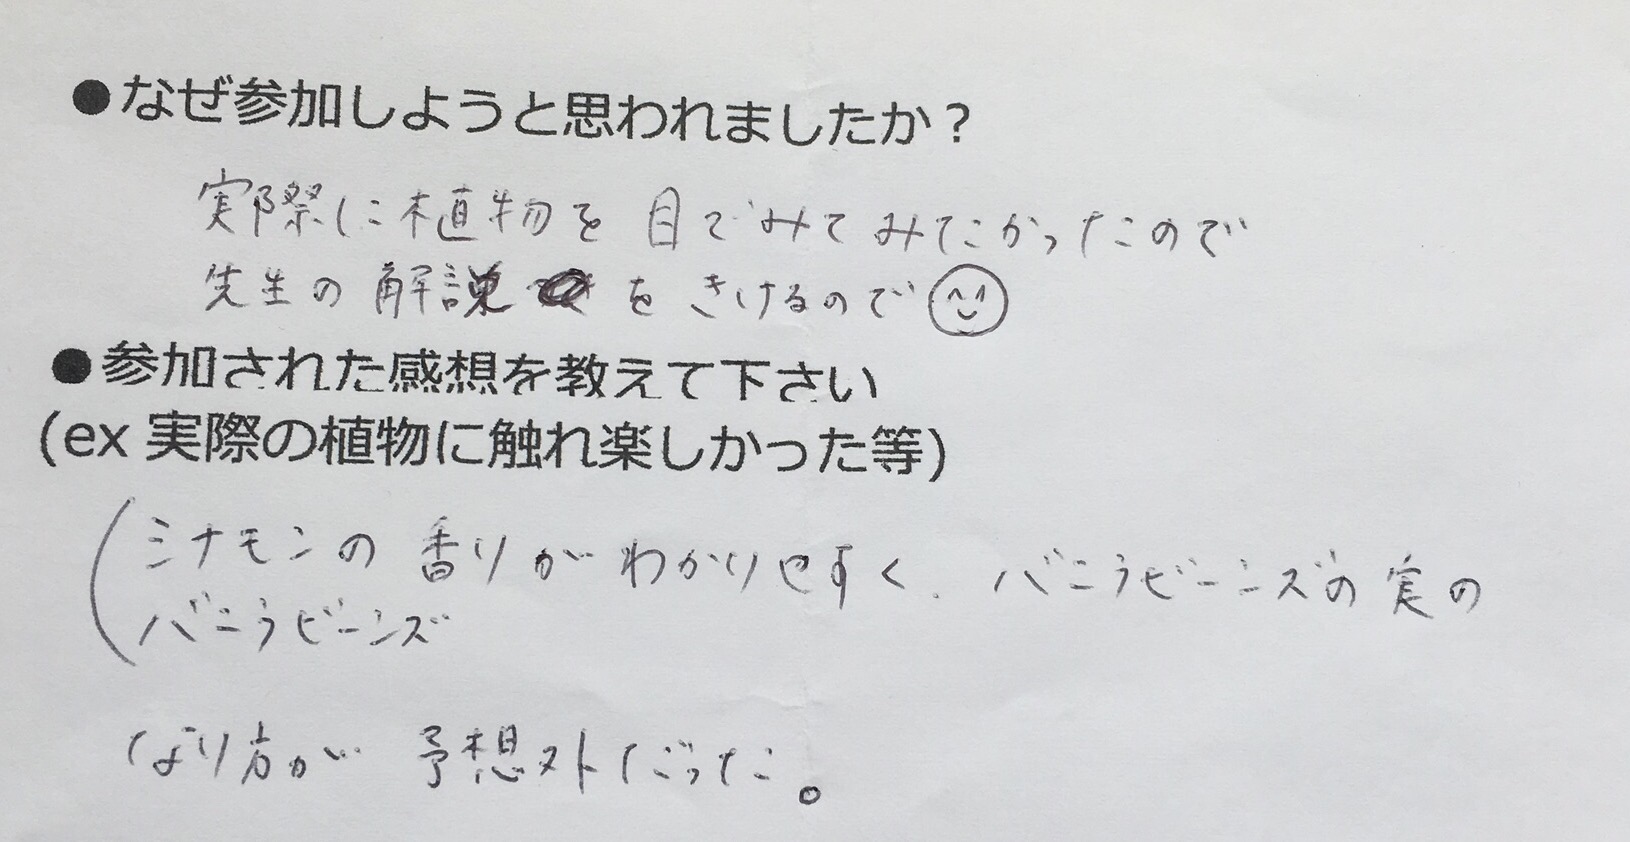 ●なぜ参加しようと思われましたか？
実際に植物を目でみてみたかったので
先生の解説をきけるので
●参加された感想を教えて下さい
(ex 実際の植物に触れ楽しかった等)
シナモンの香りがわかりやすく、バニラビーンズの実の
バニラビーンズ
なり方が 予想外だった。